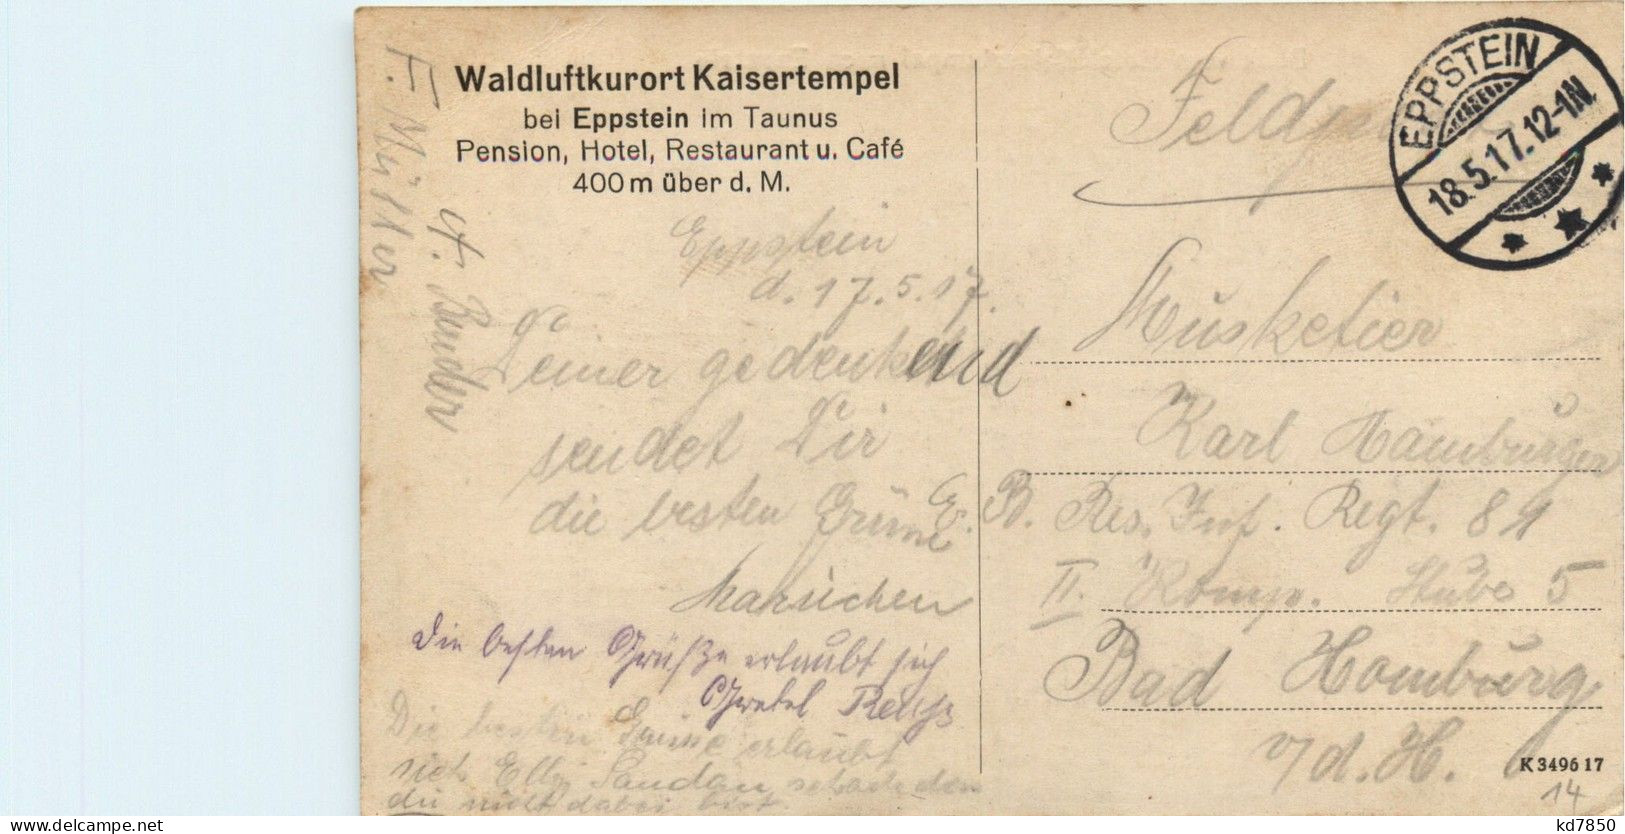 Waldluftkurort Kaisertempel
bei Eppstein im Taunus
Pension, Hotel, Restaurant u. Café
400 m über d. M.
EPPSTEIN
18.5.17.12-1N.
F. Müller
Feldpost
Eppstein
d. 17.5.17.
Deiner gedenkend
sendet Dir
die besten Grüsse
Mariechen
Die besten Grüße erlaubt sich
Gretel
Die besten Grüsse erlaubt
sich Elly Sandau schade das
du nicht dabei bist.
Musketier
Karl Hamburger
E. B. Res. Inf. Regt. 81
II. Komp. Stube 5
Bad Homburg
v/d. H.
K 3496 17
14
kd7850
delcampe.net